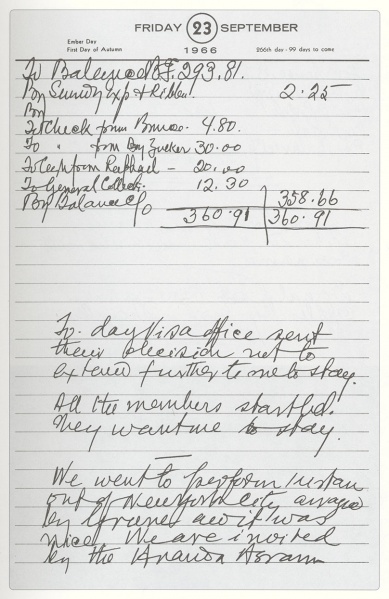 FRIDAY 23 SEPTEMBER
Ember Day
First Day of Autumn
1966
266th day - 99 days to come
To Balance B.F. 293.81.
By Sundry exp & Ribbon. 2.25
By
To Check from Bruce. 4.80.
To " from Dr Zucker 30.00
To Cash from Raphael — 20.00
To General Collect. 12.30
By Balance C/o 358.66
360.91 360.91
To-day Visa office sent
their decision not to
extend further to me to stay.
All the members startled.
They want me to stay.
We went to perform kirtan
out of New York City arranged
by and it was
nice. We are invited
by the Ananda Asram